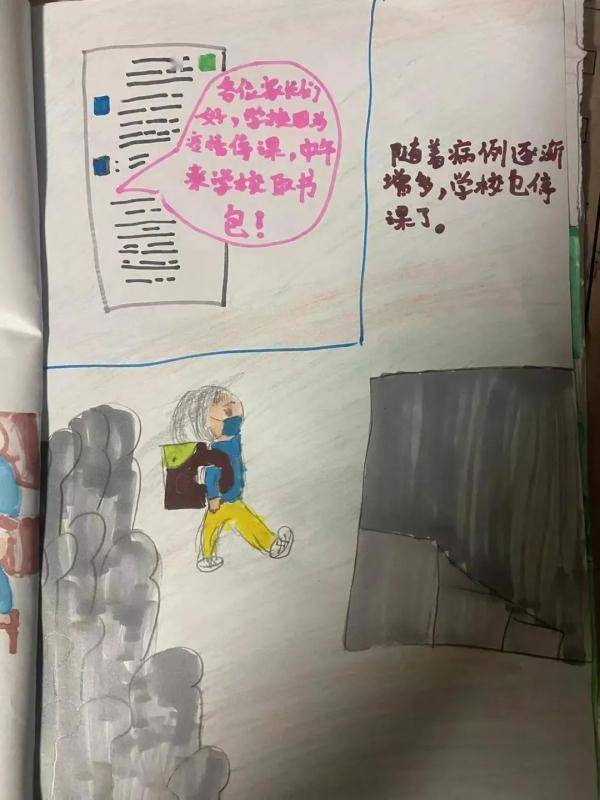 各位家长们
好，学校因为
疫情停课，中午
来学校取书
包！
随着病例逐渐
增多，学校也停
课了。